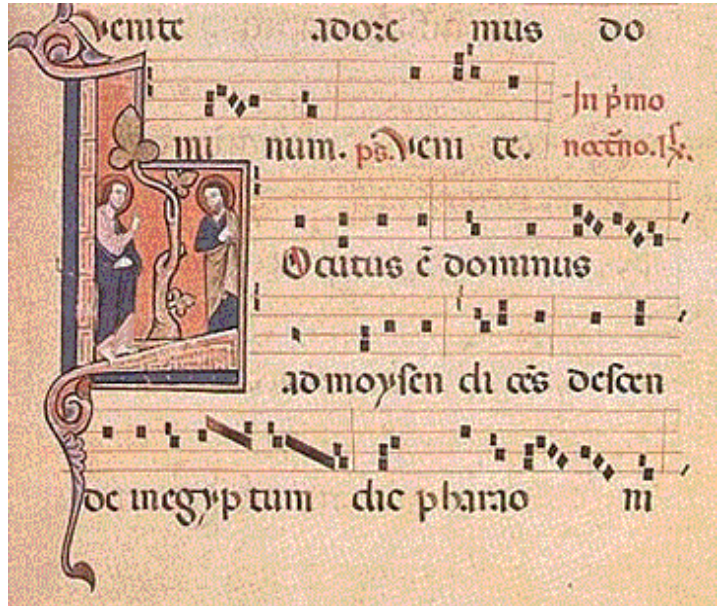 Venite adore mus do
mi num. ps. Veni te. In p̄mo
noct̄no. ꝶ.
Locutus ē dominus
ad moysen di cēs descen
de in egyptum dic pharao ni